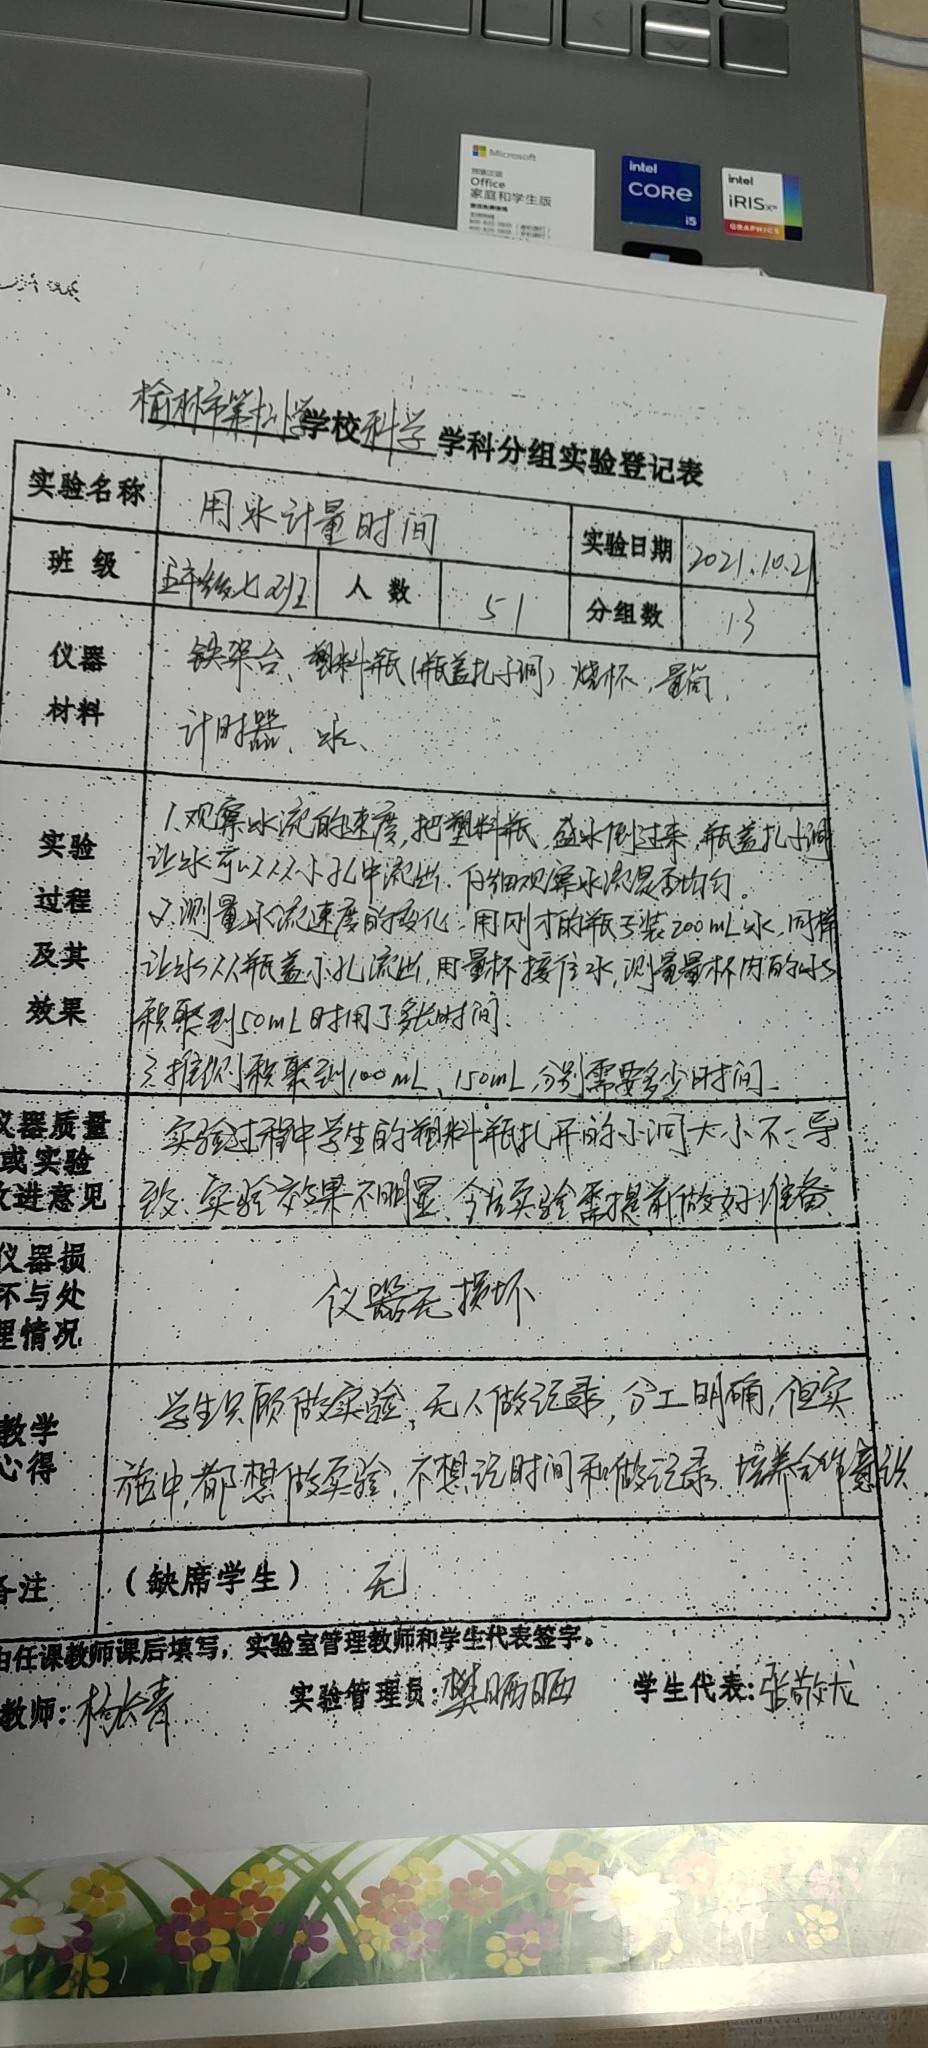 Microsoft
Office
家庭和学生版
intel
CORe
i5
intel
iRISxe
GRAPHICS
榆林市第 小学学校科学学科分组实验登记表
实验名称 用水计量时间 实验日期 2021.10.21
班级 五年级七班 人数 51 分组数 13
仪器 铁架台、塑料瓶(瓶盖扎小洞)烧杯、量筒、
材料 计时器、水、
1.观察水流的速度,把塑料瓶盛水倒过来,瓶盖扎小洞
实验 让水可以从小孔中流出.仔细观察水流是否均匀.
过程 2.测量水流速度的变化.用刚才的瓶子装200mL水,同样
及其 让水从瓶盖小孔流出,用量杯接住水,测量量杯内的水
效果 积聚到50mL时用了多长时间.
3.推测积聚到100mL、150mL分别需要多少时间.
仪器质量 实验过程中学生的塑料瓶扎开的小洞大小不一导
或实验
改进意见 致实验效果不明显.今后实验需提前做好准备
仪器损
坏与处 仪器无损坏
理情况
教学 学生只顾做实验,无人做记录,分工明确,但实
心得 施中,都想做实验,不想记时间和做记录.培养合作意识
备注 (缺席学生) 无
由任课教师课后填写,实验室管理教师和学生代表签字。
教师:杨长青 实验管理员:樊晒晒 学生代表:张敬龙